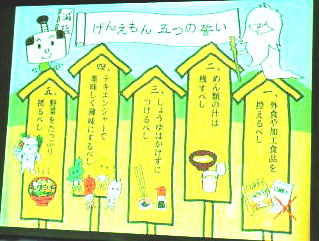 減塩
げんえもん 五つの誓い
一、外食や加工食品を
控えるべし
二、めん類の汁は
残すべし
三、しょうゆはかけずに
つけるべし
四、テキエンジャーで
美味しく薄味にするべし
五、野菜をたっぷり
摂るべし
CURRY